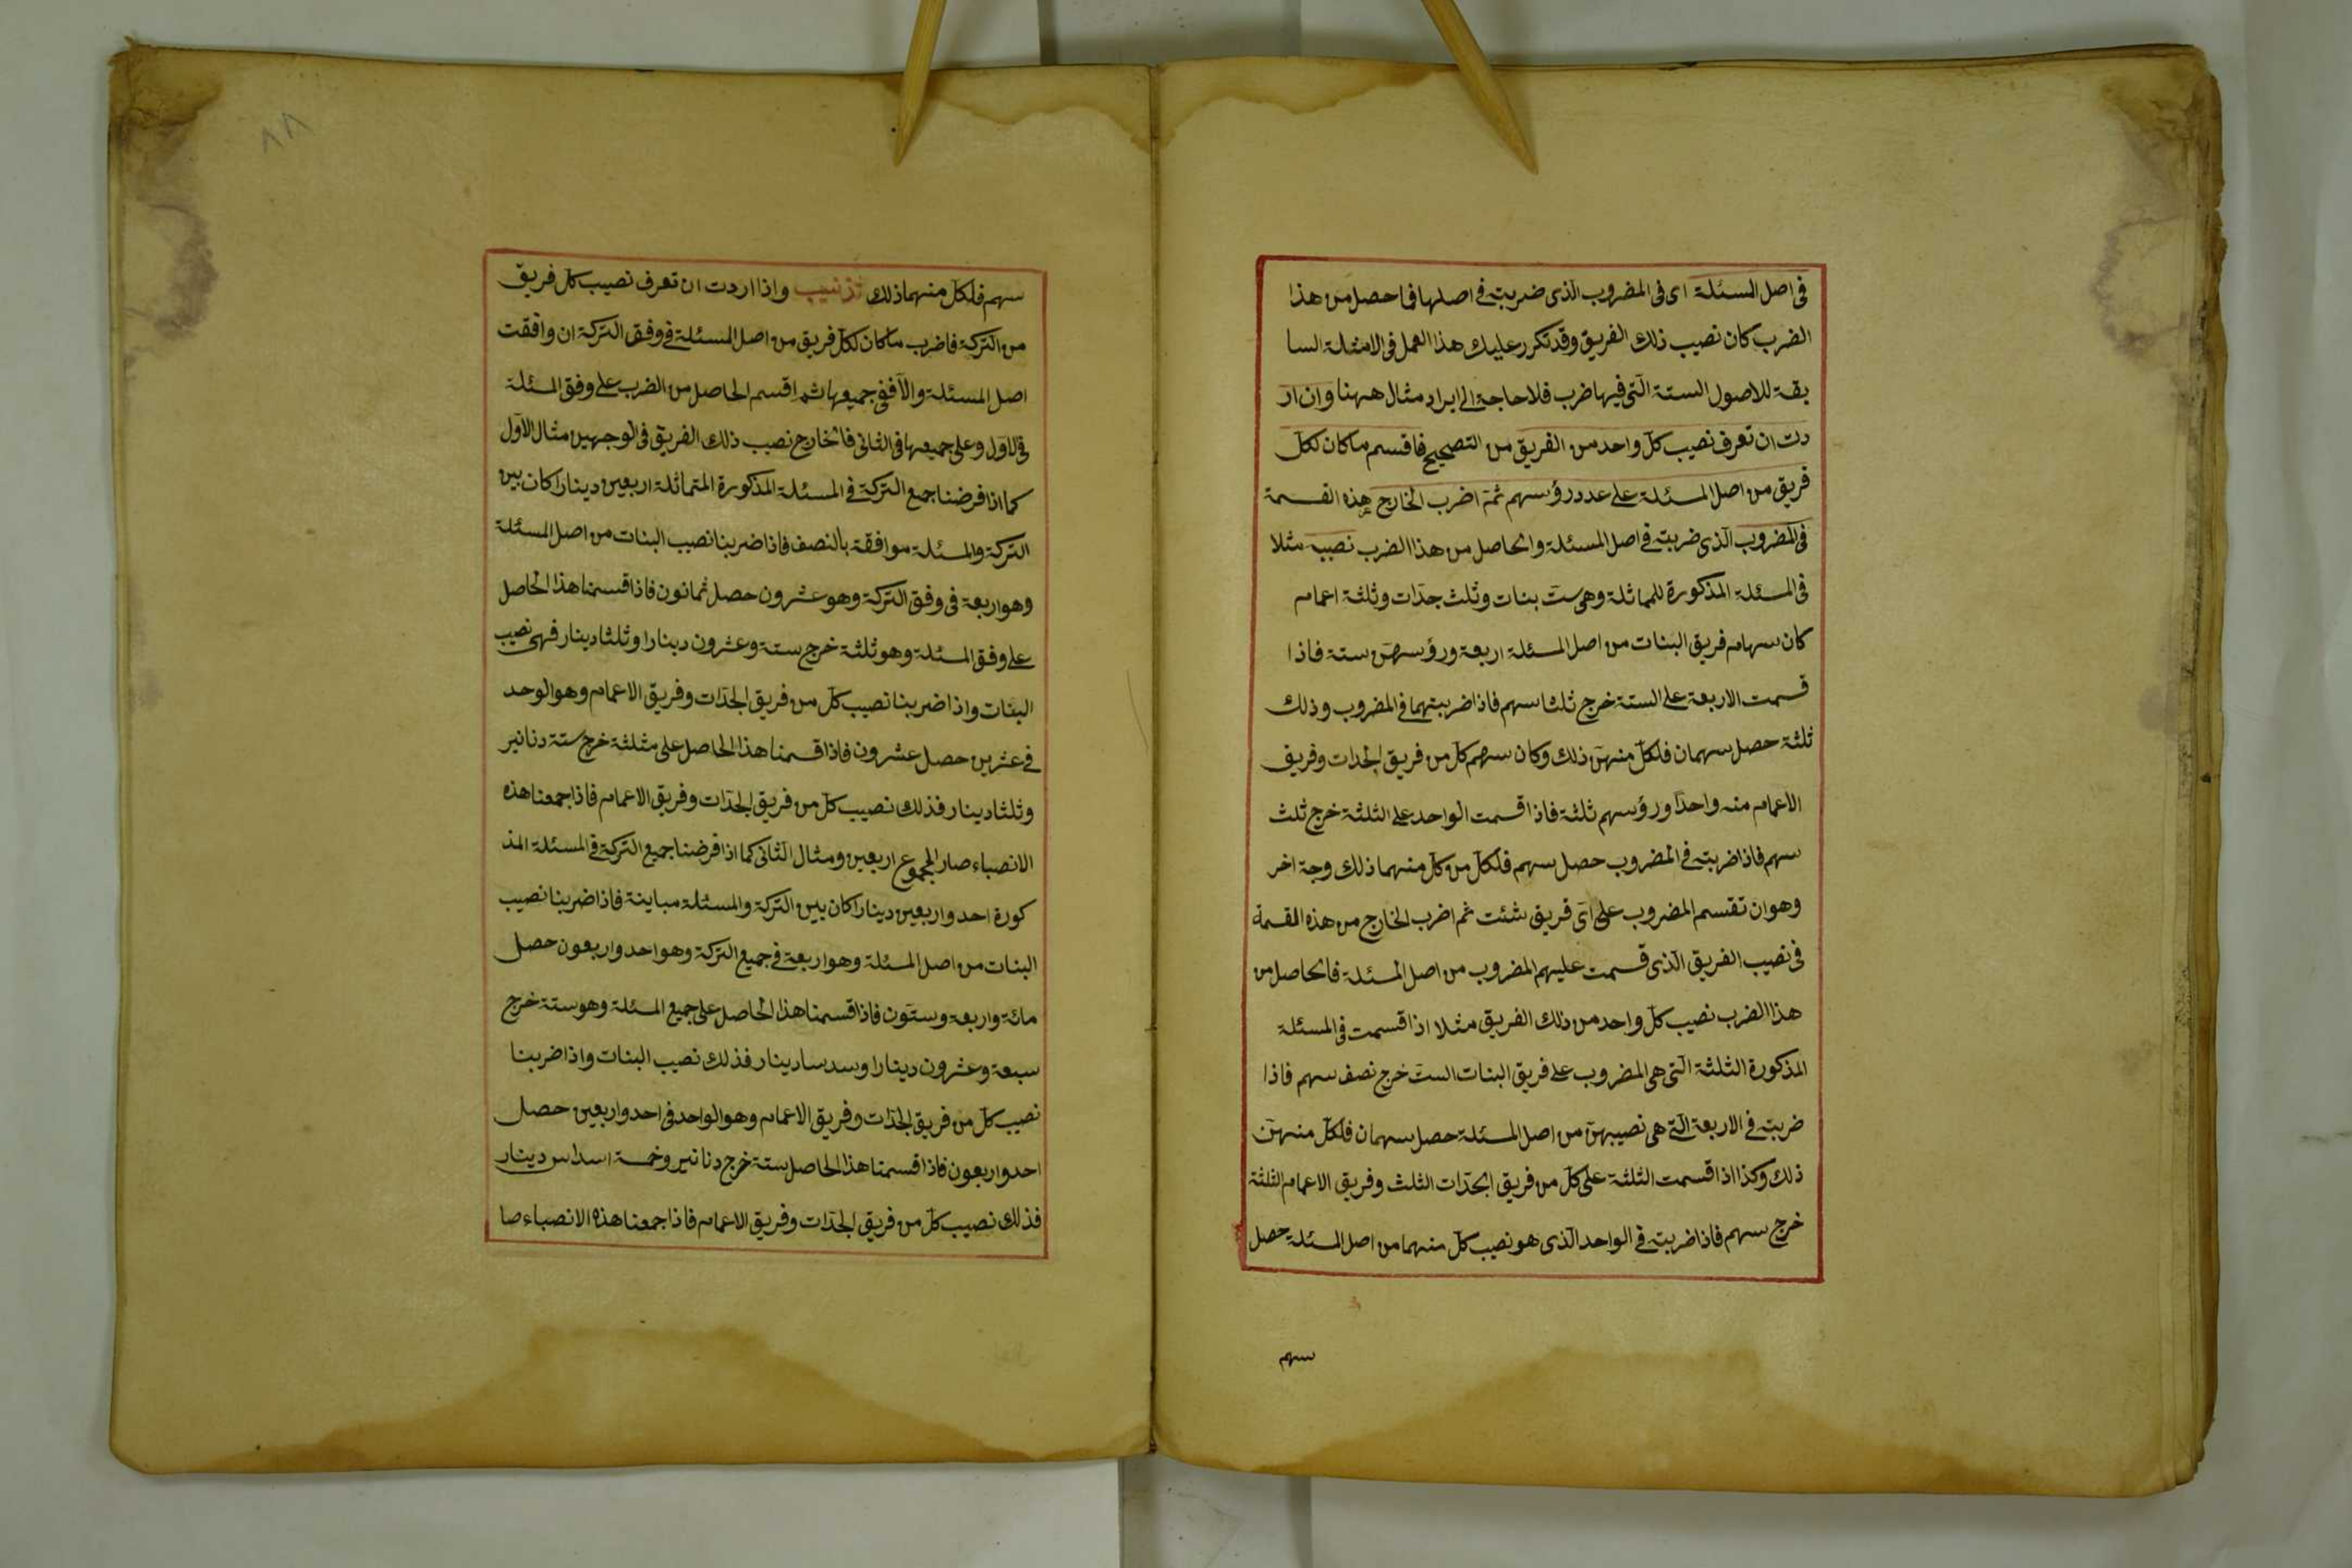 فى اصل المسئلة اى فى المضروب الذى ضربته فى اصلها فما حصل من هذا
الضرب كان نصيب ذلك الفريق وقد تكرر عليك هذا العمل فى الامثلة السا
بقة للاصول الستة التى فيها ضرب فلا حاجة الى ايراد مثال ههنا وان ار
دت ان تعرف نصيب كل واحد من الفريق من التصحيح فاقسم ما كان لكل
فريق من اصل المسئلة على عدد رؤسهم ثمة اضرب الخارج هذه القسمة
فى المضروب الذى ضربته فى اصل المسئلة والحاصل من هذا الضرب نصيب مثلا
فى المسئلة المذكورة للمماثلة وهى ست بنات وثلث جدات وثلثة اعمام
كان سهام فريق البنات من اصل المسئلة اربعة ورؤسهن ستة فاذا
قسمت الاربعة على الستة خرج ثلثا سهم فاذا ضربتهما فى المضروب وذلك
ثلثة حصل سهمان فلكل منهن ذلك وكان سهم كل من فريق الجدات وفريق
الاعمام منه واحدا ورؤسهم ثلثة فاذا قسمت الواحد على الثلثة خرج ثلث
سهم فاذا ضربته فى المضروب حصل سهم فلكل من كل منهما ذلك وجه اخر
وهو ان تقسم المضروب على اى فريق شئت ثم اضرب الخارج من هذه القسمة
فى نصيب الفريق الذى قسمت عليهم المضروب من اصل المسئلة فالحاصل من
هذا الضرب نصيب كل واحد من ذلك الفريق مثلا اذا قسمت فى المسئلة
المذكورة الثلثة التى هى المضروب على فريق البنات الست خرج نصف سهم فاذا
ضربته فى الاربعة التى هى نصيبهن من اصل المسئلة حصل سهمان فلكل منهن
ذلك وكذا اذا قسمت الثلثة على كل من فريق الجدات الثلث وفريق الاعمام الثلثة
خرج سهم فاذا ضربته فى الواحد الذى هو نصيب كل منهما من اصل المسئلة حصل
سهم
٨٨
سهم فلكل منهما ذلك تذنيب واذا اردت ان تعرف نصيب كل فريق
من التركة فاضرب ما كان لكل فريق من اصل المسئلة فى وفق التركة ان وافقت
اصل المسئلة والا ففى جميعها ثم اقسم الحاصل من الضرب على وفق المسئلة
فى الاول وعلى جميعها فى الثانى فالخارج نصيب ذلك الفريق فى الوجهين مثال الاول
كما اذا فرضنا جميع التركة فى المسئلة المذكورة المتماثلة اربعين دينارا كان بين
التركة والمسئلة موافقة بالنصف فاذا ضربنا نصيب البنات من اصل المسئلة
وهو اربعة فى وفق التركة وهو عشرون حصل ثمانون فاذا قسمنا هذا الحاصل
على وفق المسئلة وهو ثلثة خرج ستة وعشرون دينارا وثلثا دينار فهى نصيب
البنات واذا ضربنا نصيب كل من فريق الجدات وفريق الاعمام وهو الوحد
فى عشرين حصل عشرون فاذا قسمنا هذا الحاصل على مثلثة خرج ستة دنانير
وثلثا دينار فذلك نصيب كل من فريق الجدات وفريق الاعمام فاذا جمعنا هذه
الانصباء صار المجموع اربعين ومثال الثانى كما اذا فرضنا جميع التركة فى المسئلة المذ
كورة احد واربعين دينارا كان بين التركة والمسئلة مباينة فاذا ضربنا نصيب
البنات من اصل المسئلة وهو اربعة فى جميع التركة وهو احد واربعون حصل
مائة واربعة وستون فاذا قسمنا هذا الحاصل على جميع المسئلة وهو ستة خرج
سبعة وعشرون دينارا وسدسا دينار فذلك نصيب البنات واذا ضربنا
نصيب كل من فريق الجدات وفريق الاعمام وهو الواحد فى احد واربعين حصل
احد واربعون فاذا قسمنا هذا الحاصل ستة خرج دنانير وخمسة اسداس دينار
فذلك نصيب كل من فريق الجدات وفريق الاعمام فاذا جمعنا هذه الانصباء صا